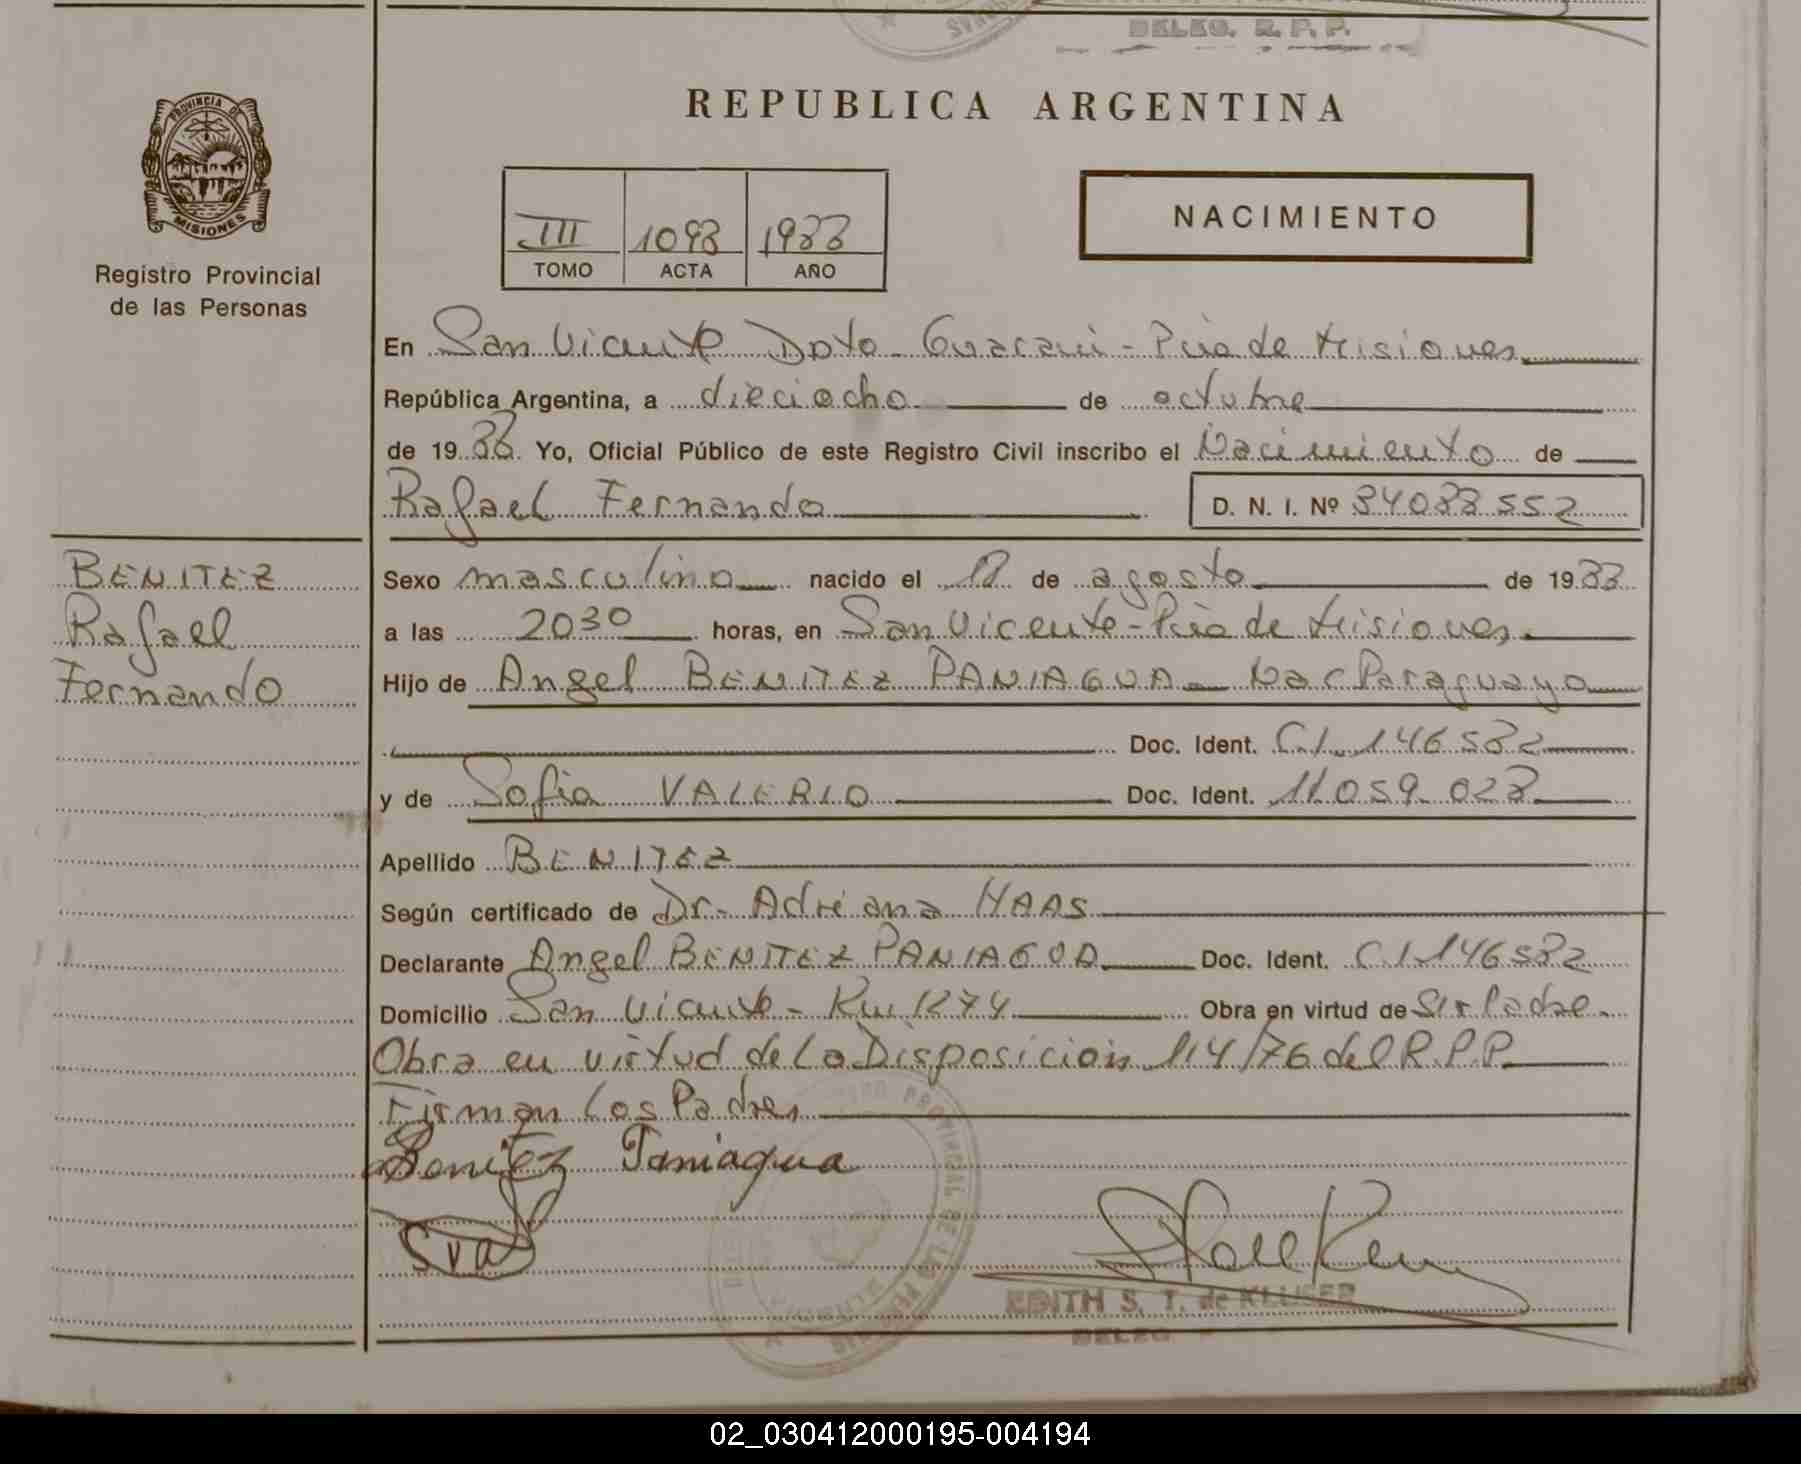 DELEG. R. P. P.
REPUBLICA ARGENTINA
PROVINCIA DE
MISIONES
Registro Provincial
de las Personas
III 1098 1988
TOMO ACTA AÑO
NACIMIENTO
En San Vicente Dpto Guaraní - Pcia de Misiones
República Argentina, a dieciocho de octubre
de 19 88 Yo, Oficial Público de este Registro Civil inscribo el Nacimiento de
Rafael Fernando D. N. I. Nº 34088552
BENITEZ
Rafael
Fernando
Sexo masculino nacido el 18 de agosto de 19 88
a las 2030 horas, en San Vicente - Pcia de Misiones
Hijo de Angel BENITEZ PANIAGUA - Nac Paraguayo
Doc. Ident. C.I. 146582
y de Sofia VALERIO Doc. Ident. 11 059 028
Apellido BENITEZ
Según certificado de Dr. Adriana HAAS
Declarante Angel BENITEZ PANIAGUA Doc. Ident. C.I 146582
Domicilio San Vicente - Km 1274 Obra en virtud de Ser Padre.
Obra en virtud de la Disposición 114/76 del R.P.P.
Firman los Padres
Benitez Paniagua
SVa
EDITH S. T. de KLUSER
DELEG
02_030412000195-004194